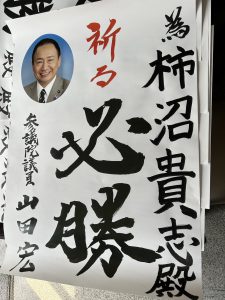 為 柿沼貴志殿
祈る
必勝
参議院議員 山田宏